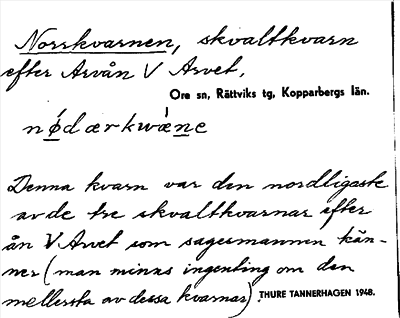 Norrkvarnen, skvaltkvarn
efter Arvån V Arvet,
Ore sn, Rättviks tg, Kopparbergs län.
nǿdærkwǽne
Denna kvarn var den nordligaste
av de tre skvaltkvarnar efter
ån V Arvet som sagesmannen kän-
ner (man minns ingenting om den
mellersta av dessa kvarnar).
THURE TANNERHAGEN 1948.